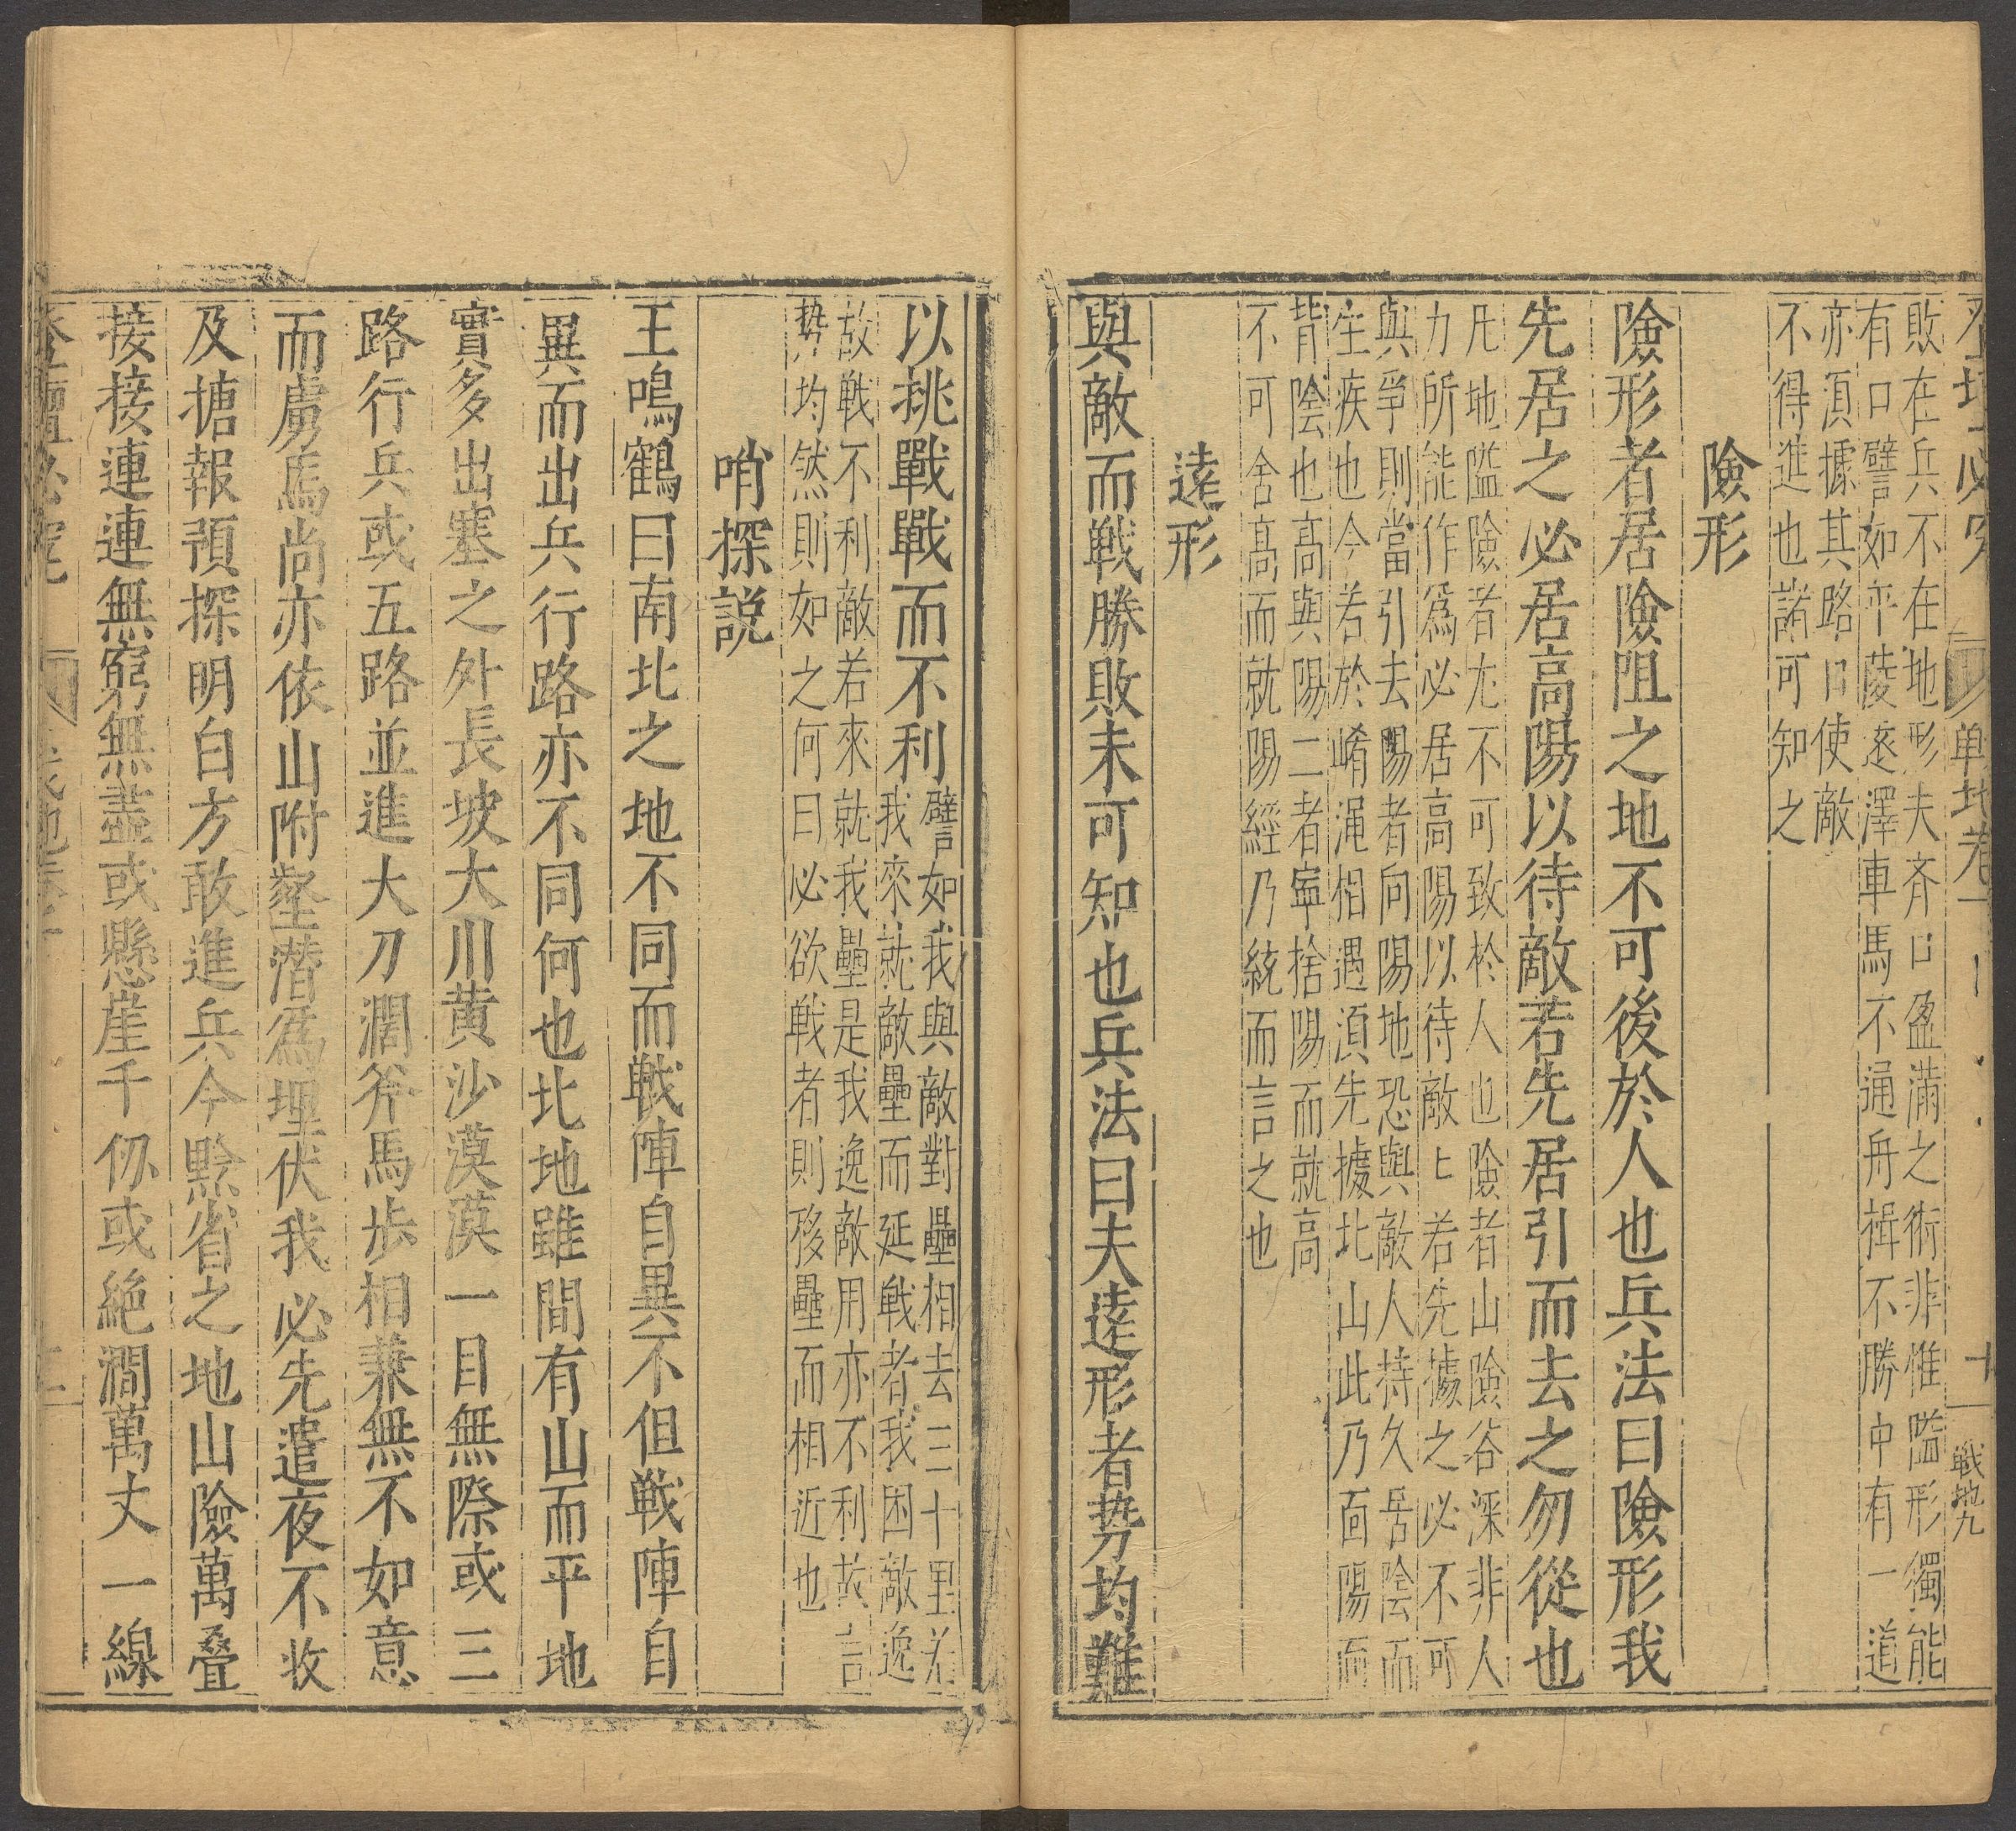 敗在兵不在地形夫斉口盈滿之術非惟隘形獨能
有口譬如平陵迻澤車馬不通舟揖不勝中有一道
亦湏據其路口使敵
不得進也諸可知之
險形
險形者居險阻之地不可後於人也兵法曰險形我
先居之必居高陽以待敵若先居引而去之勿從也
凡地隘險者尢不可致於人也險者山險谷深非人
力所能作爲必居高陽以待敵〻若先據之必不可
與爭則當引去陽者向陽地恐與敵人持久居陰而
生疾也今若於崤澠相遇湏先據北山此乃面陽而
背陰也高與陽二者寧捨陽而就高
不可舍高而就陽經乃統而言之也
逺形
與敵而戦勝敗未可知也兵法曰夫逺形者势均難
以挑戰戰而不利
譬如我與敵對壘相去三十里若
我來就敵壘而延戦者我困敵逸
故戦不利敵若來就我壘是我逸敵用亦不利故言
势均然則如之何曰必欲戦者則移壘而相近也
哨探説
王鳴鶴曰南北之地不同而戦陣自異不但戦陣自
異而出兵行路亦不同何也北地雖間有山而平地
實多出塞之外長坡大川黄沙漠漠一目無際或三
路行兵或五路並進大刀濶斧馬步相兼無不如意
而虜馬尚亦依山附壑潜爲埋伏我必先遣夜不收
及塘報預探明白方敢進兵今黔省之地山險萬叠
接接連連無窮無盡或懸崖千仭或絶澗萬丈一線